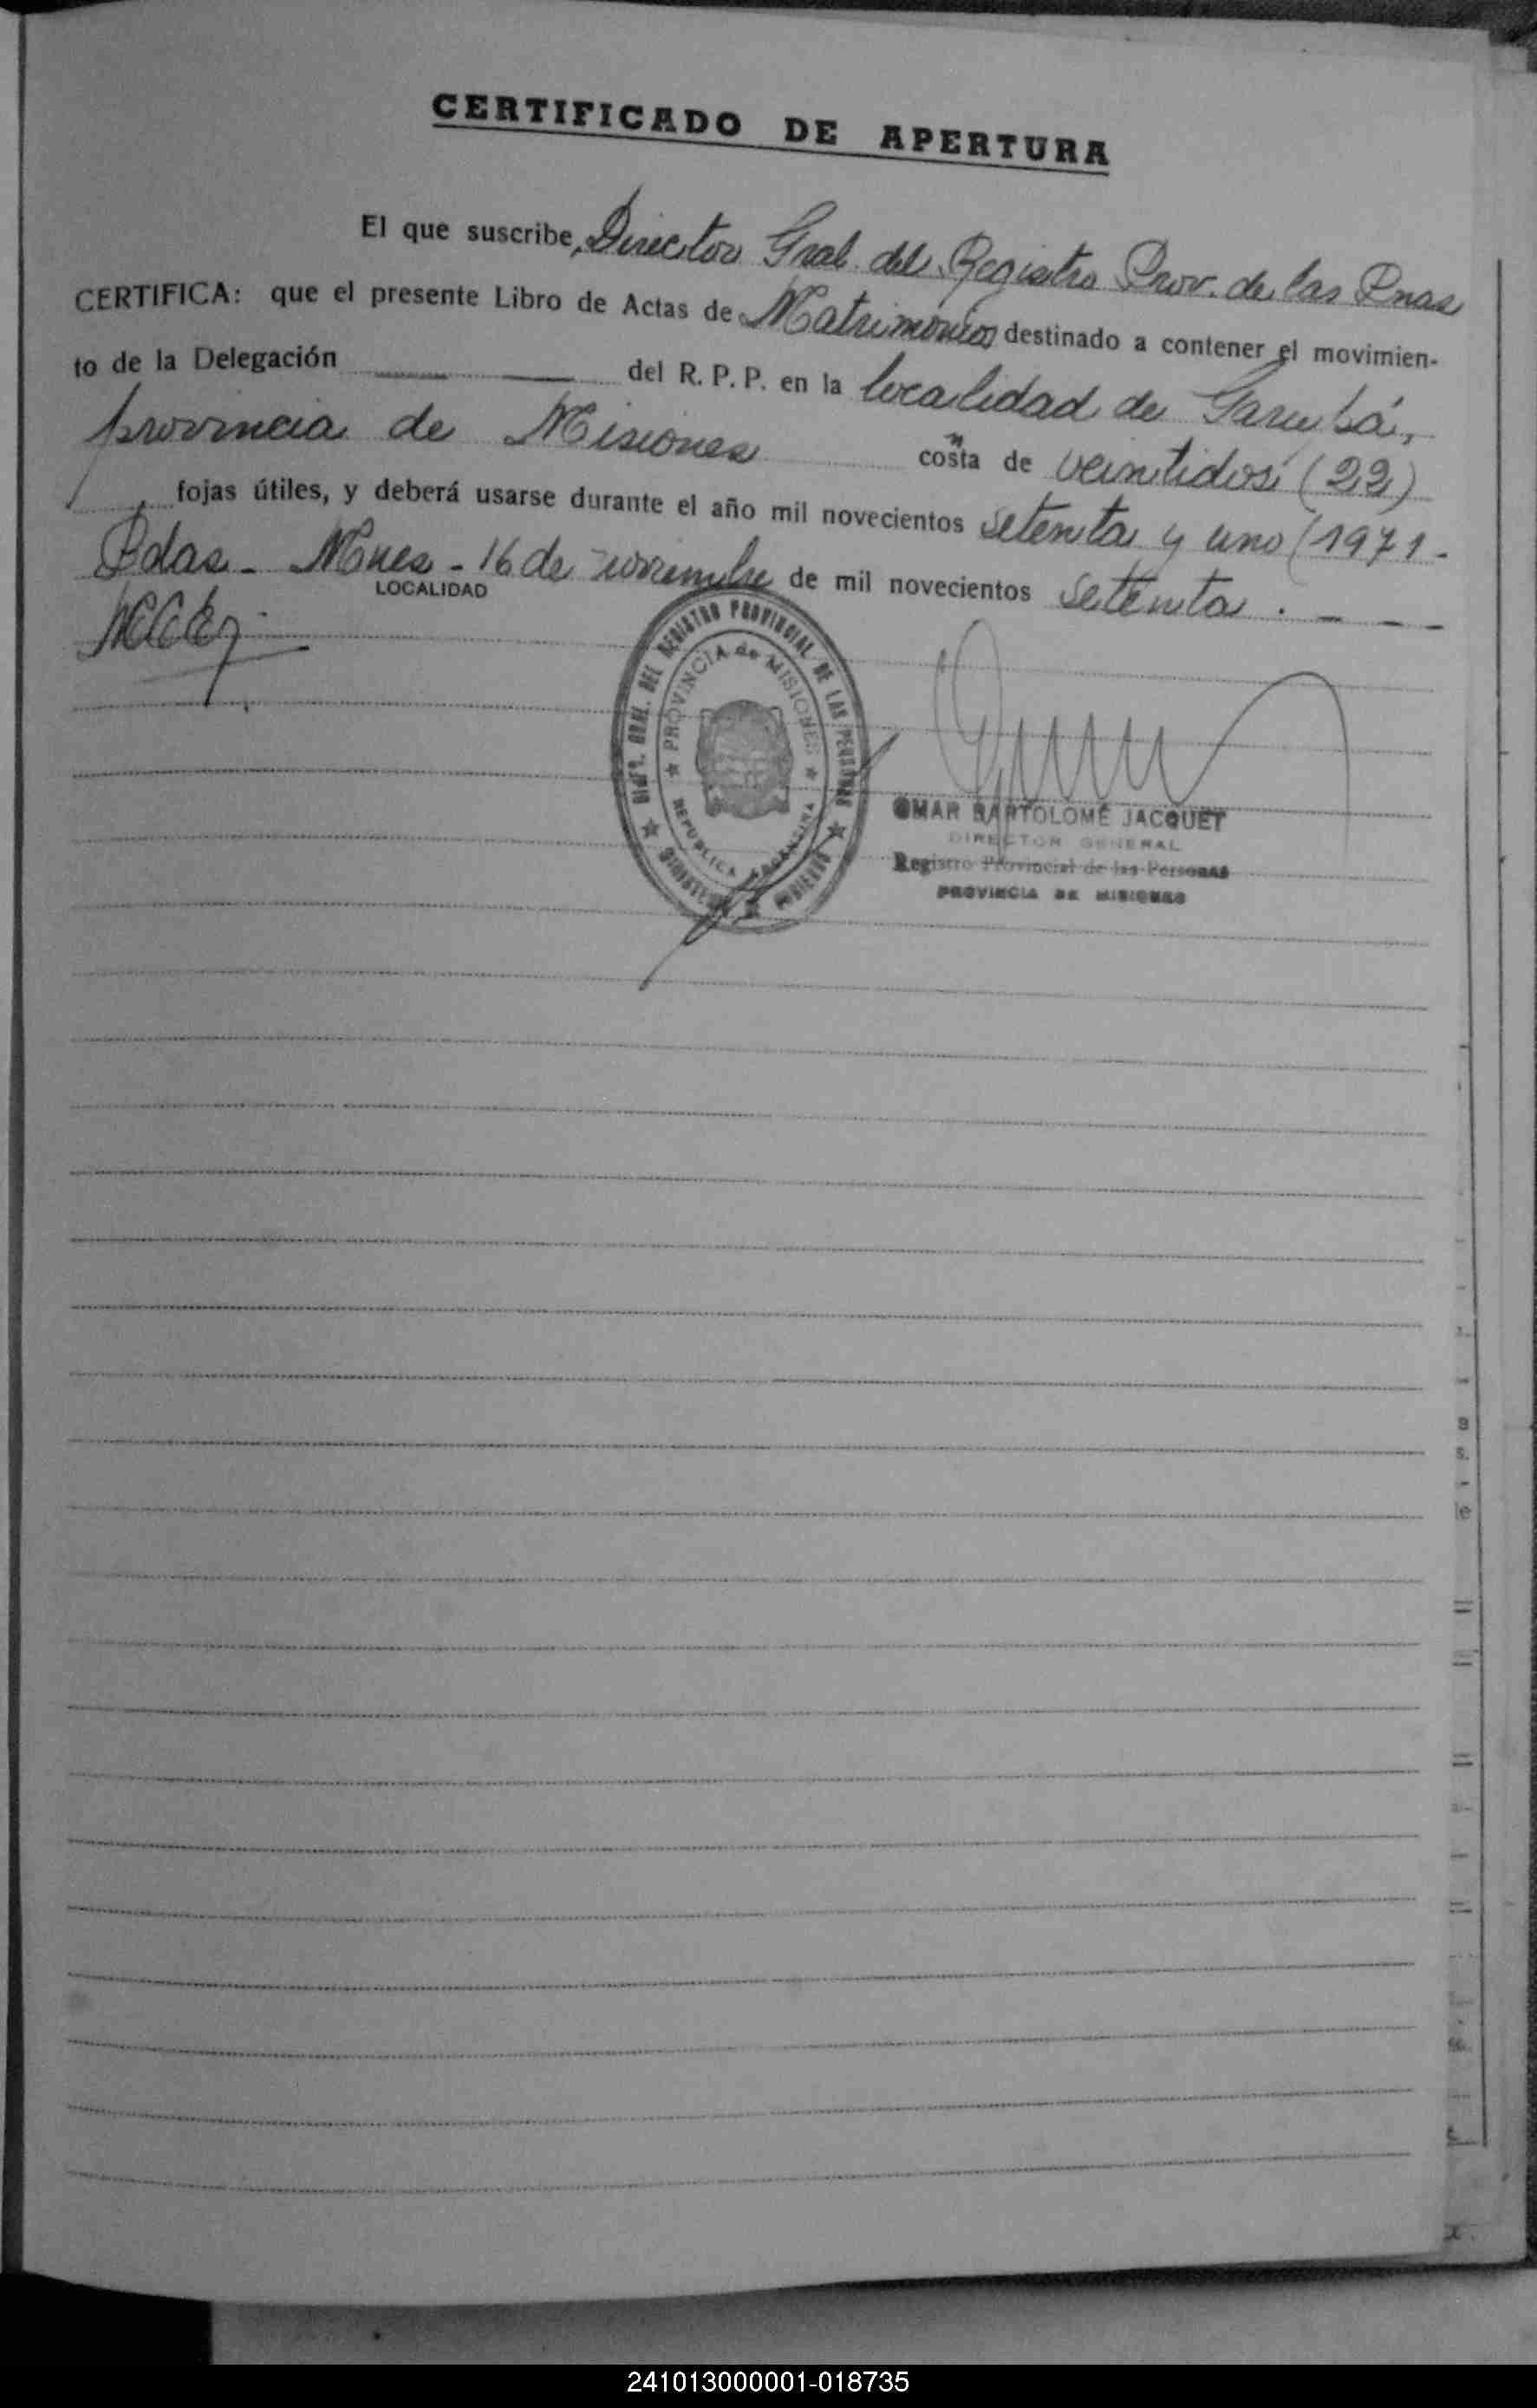 CERTIFICADO DE APERTURA
El que suscribe, Director Gral. del Registro Prov. de las Pnas
CERTIFICA: que el presente Libro de Actas de Matrimonios destinado a contener el movimien-
to de la Delegación del R. P. P. en la localidad de Garubá,
provincia de Misiones consta de veintidos (22)
fojas útiles, y deberá usarse durante el año mil novecientos setenta y uno (1971.-
Pdas - Mnes - 16 de noviembre de mil novecientos setenta . - - -
LOCALIDAD
DIREC. GRAL. DEL REGISTRO PROVINCIAL DE LAS PERSONAS
PROVINCIA de MISIONES
REPUBLICA ARGENTINA
MINISTERIO DE GOBIERNO
OMAR BARTOLOMÉ JACQUET
DIRECTOR GENERAL
Registro Provincial de las Personas
PROVINCIA DE MISIONES
241013000001-018735